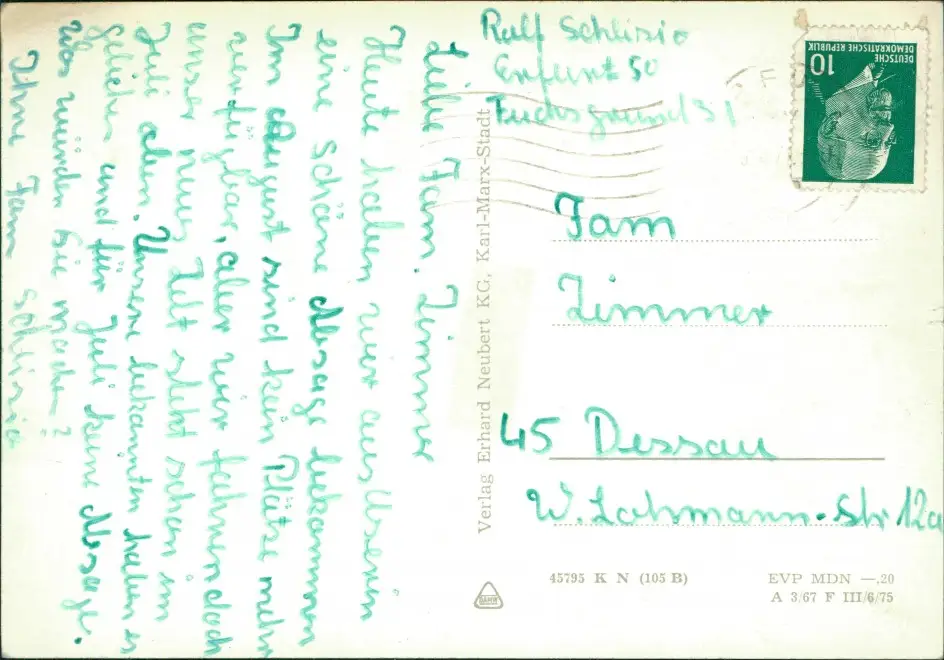 Liebe Fam. Zimmer
Heute haben wir aus Usedin
eine schöne Absage bekommen
Im August sind kein Plätze mehr
verfügbar, aber wir fahren doch
unser neues Zelt steht schon im
Juli oben. Unsere bekannten haben es
gleiches und für Juli keine Absage.
Was würden Sie machen?
Ihre Fam Schlisio
Ralf Schlisio
Erfurt 50
Fuchsgrund 31
Fam
Zimmer
45 Dessau
W. Lohmann-Str 12a
Verlag Erhard Neubert KG, Karl-Marx-Stadt
DEUTSCHE
DEMOKRATISCHE REPUBLIK
10
45795 K N (105 B)
EVP MDN —,20
A 3/67 F III/6/75